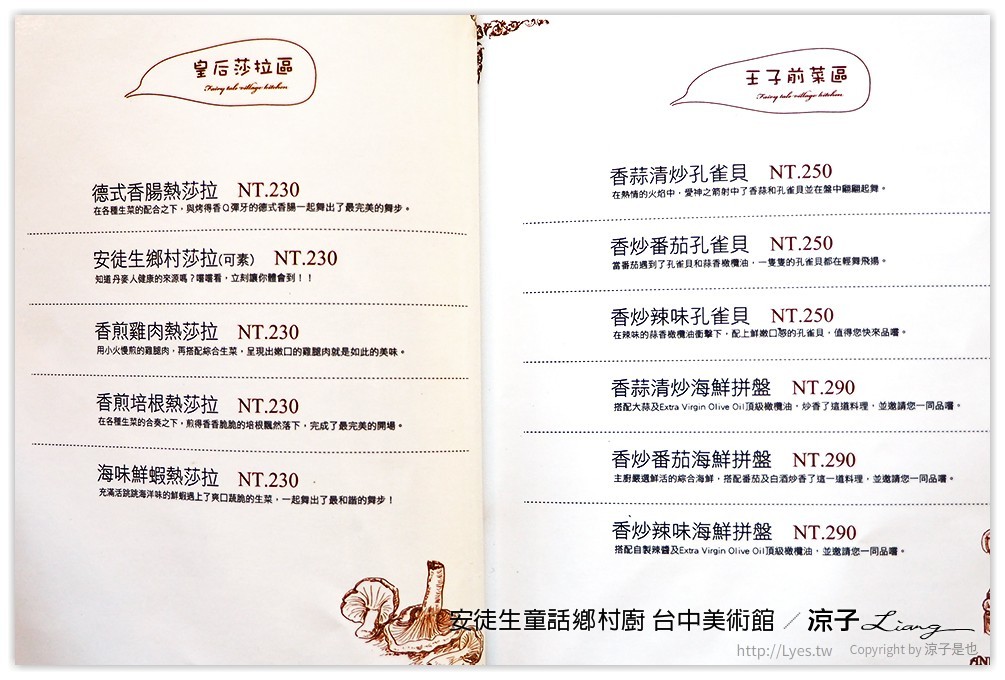 皇后莎拉區
Fairy tale village kitchen
德式香腸熱莎拉 NT.230
在各種生菜的配合之下，與烤得香Q彈牙的德式香腸一起舞出了最完美的舞步。
安徒生鄉村莎拉(可素) NT.230
知道丹麥人健康的來源嗎？嚐嚐看，立刻讓你體會到！！
香煎雞肉熱莎拉 NT.230
用小火慢煎的雞腿肉，再搭配綜合生菜，呈現出嫩口的雞腿肉就是如此的美味。
香煎培根熱莎拉 NT.230
在各種生菜的合奏之下，煎得香香脆脆的培根飄然落下，完成了最完美的開場。
海味鮮蝦熱莎拉 NT.230
充滿活跳跳海洋味的鮮蝦遇上了爽口蔬脆的生菜，一起舞出了最和諧的舞步！
王子前菜區
Fairy tale village kitchen
香蒜清炒孔雀貝 NT.250
在熱情的火焰中，愛神之箭射中了香蒜和孔雀貝並在盤中翩翩起舞。
香炒番茄孔雀貝 NT.250
當番茄遇到了孔雀貝和蒜香橄欖油，一隻隻的孔雀貝都在輕舞飛揚。
香炒辣味孔雀貝 NT.250
在辣味的蒜香橄欖油衝擊下，配上鮮嫩口感的孔雀貝，值得您快來品嚐。
香蒜清炒海鮮拼盤 NT.290
搭配大蒜及Extra Virgin Olive Oil頂級橄欖油，炒香了這道料理，並邀請您一同品嚐。
香炒番茄海鮮拼盤 NT.290
主廚嚴選鮮活的綜合海鮮，搭配番茄及白酒炒香了這一道料理，並邀請您一同品嚐。
香炒辣味海鮮拼盤 NT.290
搭配自製辣醬及Extra Virgin Olive Oil頂級橄欖油，並邀請您一同品嚐。
安徒生童話鄉村廚 台中美術館 ／涼子 Liang
http://Lyes.tw Copyright by 涼子是也